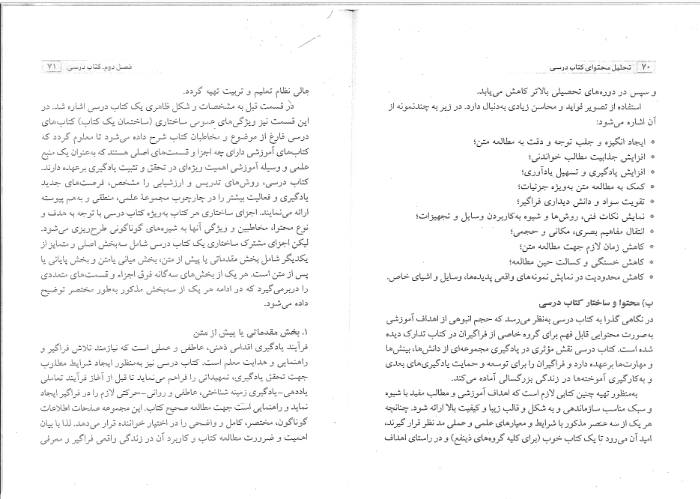 ۷۰ تحلیل محتوای کتاب درسی
و سپس در دوره‌های تحصیلی بالاتر کاهش می‌یابد.
استفاده از تصویر فواید و محاسن زیادی به‌دنبال دارد. در زیر به چندنمونه از
آن اشاره می‌شود:
• ایجاد انگیزه و جلب توجه و دقت به مطالعه متن؛
• افزایش جذابیت مطالب خواندنی؛
• افزایش یادگیری و تسهیل یادآوری؛
• کمک به مطالعه متن به‌ویژه جزئیات؛
• تقویت سواد و دانش دیداری فراگیر؛
• نمایش نکات فنی، روش‌ها و شیوه به‌کاربردن وسایل و تجهیزات؛
• انتقال مفاهیم بصری، مکانی و حجمی؛
• کاهش زمان لازم جهت مطالعه متن؛
• کاهش خستگی و کسالت حین مطالعه؛
• کاهش محدودیت در نمایش نمونه‌های واقعی پدیده‌ها، وسایل و اشیای خاص.
ب) محتوا و ساختار کتاب درسی
در نگاهی گذرا به کتاب درسی به‌نظر می‌رسد که حجم انبوهی از اهداف آموزشی
به‌صورت محتوایی قابل فهم برای گروه خاصی از فراگیران در کتاب تدارک دیده
شده است. کتاب درسی نقش مؤثری در یادگیری مجموعه‌ای از دانش‌ها، بینش‌ها
و مهارت‌ها برعهده دارد و فراگیران را برای توسعه و حمایت یادگیری‌های بعدی
و به‌کارگیری آموخته‌ها در زندگی بزرگسالی آماده می‌کند.
به‌منظور تهیه چنین کتابی لازم است که اهداف آموزشی و مطالب مفید با شیوه
و سبک مناسب سازماندهی و به شکل و قالب زیبا و کیفیت بالا ارائه شود. چنانچه
هر یک از سه عنصر مذکور با شرایط و معیارهای علمی و عملی مد نظر قرار گیرند،
امید آن می‌رود تا یک کتاب خوب (برای کلیه گروه‌های ذینفع) و در راستای اهداف
فصل دوم، کتاب درسی ۷۱
عالی نظام تعلیم و تربیت تهیه گردد.
در قسمت قبل به مشخصات و شکل ظاهری یک کتاب درسی اشاره شد. در
این قسمت نیز ویژگی‌های عمومی ساختاری (ساختمان یک کتاب) کتاب‌های
درسی فارغ از موضوع و مخاطبان کتاب شرح داده می‌شود تا معلوم گردد که
کتاب‌های آموزشی دارای چه اجزا و قسمت‌های اصلی هستند که به‌عنوان یک منبع
علمی و وسیله آموزشی اهمیت ویژه‌ای در تحقق و تثبیت یادگیری برعهده دارند.
کتاب درسی، روش‌های تدریس و ارزشیابی را مشخص، فرصت‌های جدید
یادگیری و فعالیت بیشتر را در چارچوب مجموعهٔ علمی، منطقی و به‌هم پیوسته
ارائه می‌نمایند. اجزای ساختاری هر کتاب به‌ویژه کتاب درسی با توجه به هدف و
نوع محتوا، مخاطبین و ویژگی آنها به شیوه‌های گوناگونی طرح‌ریزی می‌شود.
لیکن اجزای مشترک ساختاری یک کتاب درسی شامل سه‌بخش اصلی و متمایز از
یکدیگر شامل بخش مقدماتی یا پیش از متن، بخش میانی یا متن و بخش پایانی یا
پس از متن است. هر یک از بخش‌های سه‌گانه فوق اجزاء و قسمت‌های متعددی
را دربرمی‌گیرد که در ادامه هر یک از سه‌بخش مذکور به‌طور مختصر توضیح
داده می‌شود.
۱. بخش مقدماتی یا پیش از متن
فرآیند یادگیری اقدامی ذهنی، عاطفی و عملی است که نیازمند تلاش فراگیر و
راهنمایی و هدایت معلم است. کتاب درسی نیز به‌منظور ایجاد شرایط مطلوب
جهت تحقق یادگیری، تمهیداتی را فراهم می‌نماید تا قبل از آغاز فرآیند تعاملی
یاددهی–یادگیری زمینه شناختی، عاطفی و روانی–حرکتی لازم را در فراگیر ایجاد
نماید و راهنمایی است جهت مطالعه صحیح کتاب. این مجموعه صفحات اطلاعات
گوناگون، مختصر، کامل و واضحی را در اختیار خواننده قرار می‌دهد. لذا با بیان
اهمیت و ضرورت مطالعه کتاب و کاربرد آن در زندگی واقعی فراگیر و معرفی